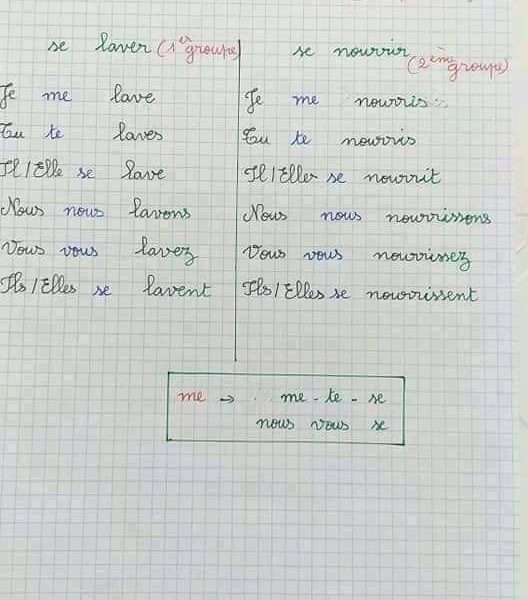 se laver (1er groupe)
Je me lave
Tu te laves
Il/Elle se lave
Nous nous lavons
Vous vous lavez
Ils/Elles se lavent
se nourrir (2ème groupe)
Je me nourris
Tu te nourris
Il/Elle se nourrit
Nous nous nourrissons
Vous vous nourrissez
Ils/Elles se nourrissent
me → me - te - se
nous vous se